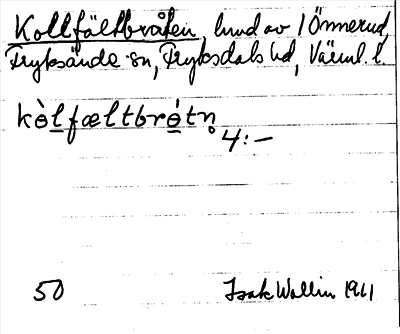 Kollfältbråten, lund av 1 Önnerud,
Fryksände sn, Fryksdals hd, Värml. l.
kòlfæltbrótn̥
4:-
50 Isak Wallin 1961